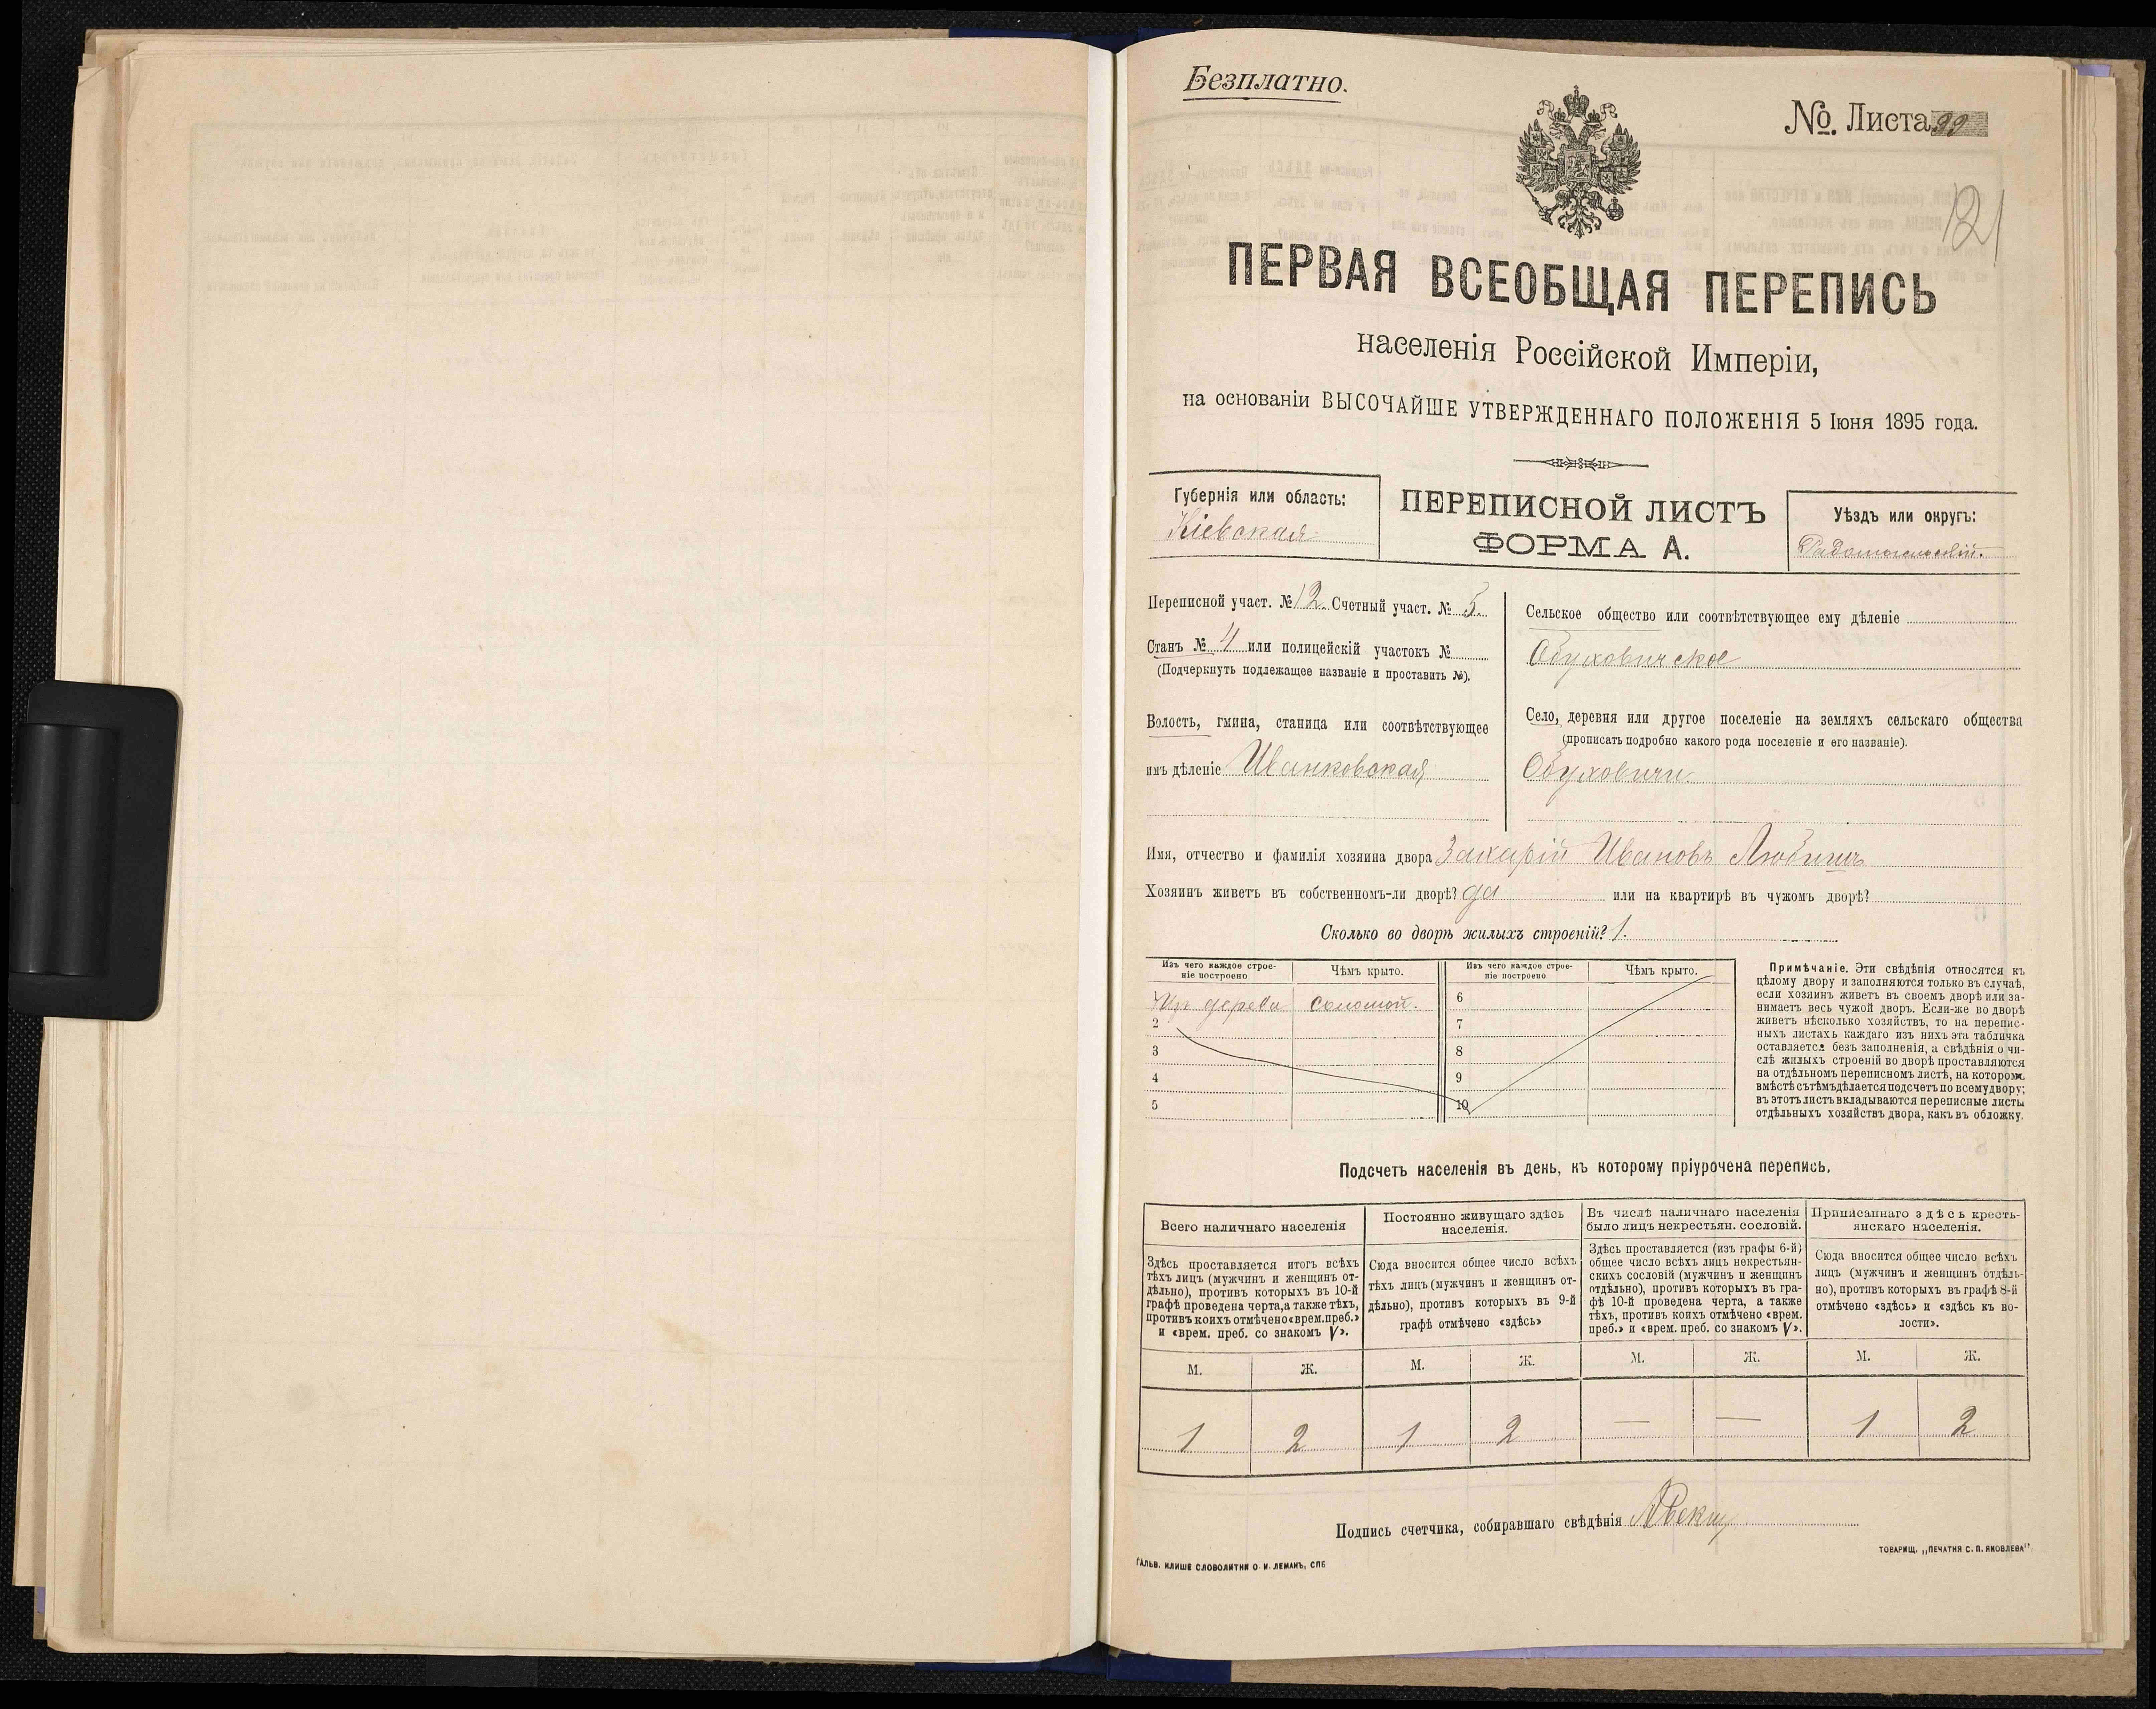 Безплатно.
№. Листа 99
121
ПЕРВАЯ ВСЕОБЩАЯ ПЕРЕПИСЬ
населенія Россійской Имперіи,
на основаніи ВЫСОЧАЙШЕ УТВЕРЖДЕННАГО ПОЛОЖЕНІЯ 5 Іюня 1895 года.
Губернія или область:
Кіевская
ПЕРЕПИСНОЙ ЛИСТЪ
ФОРМА А.
Уѣздъ или округъ:
Радомысльскій.
Переписной участ. № 12. Счетный участ. № 5.
Станъ № 4 или полицейскій участокъ №
(Подчеркнуть подлежащее названіе и проставить №).
Волость, гмина, станица или соотвѣтствующее
имъ дѣленіе Иванковская
Сельское общество или соотвѣтствующее ему дѣленіе
Обуховичское
Село, деревня или другое поселеніе на земляхъ сельскаго общества
(прописать подробно какого рода поселеніе и его названіе).
Обуховичи
Имя, отчество и фамилія хозяина двора Захарій Ивановъ
Хозяинъ живетъ въ собственномъ-ли дворѣ? да или на квартирѣ въ чужомъ дворѣ?
Сколько во дворѣ жилыхъ строеній? 1.
Изъ чего каждое строе-
ніе построено
Чѣмъ крыто.
Изъ чего каждое строе-
ніе построено
Чѣмъ крыто.
1 Изъ дерева соломой.
2
3
4
5
6
7
8
9
10
Примѣчаніе. Эти свѣдѣнія относятся къ
цѣлому двору и заполняются только въ случаѣ,
если хозяинъ живетъ въ своемъ дворѣ или за-
нимаетъ весь чужой дворъ. Если-же во дворѣ
живетъ нѣсколько хозяйствъ, то на перепис-
ныхъ листахъ каждаго изъ нихъ эта табличка
оставляется безъ заполненія, а свѣдѣнія о чи-
слѣ жилыхъ строеній во дворѣ проставляются
на отдѣльномъ переписномъ листѣ, на которомъ
вмѣстѣ съ тѣмъ дѣлается подсчетъ по всему двору;
въ этотъ листъ вкладываются переписные листы
отдѣльныхъ хозяйствъ двора, какъ въ обложку.
Подсчетъ населенія въ день, къ которому пріурочена перепись.
Всего наличнаго населенія
Здѣсь проставляется итогъ всѣхъ
тѣхъ лицъ (мужчинъ и женщинъ от-
дѣльно), противъ которыхъ въ 10-й
графѣ проведена черта, а также тѣхъ,
противъ коихъ отмѣчено «врем. преб.»
и «врем. преб. со знакомъ V».
Постоянно живущаго здѣсь
населенія.
Сюда вносится общее число всѣхъ
тѣхъ лицъ (мужчинъ и женщинъ от-
дѣльно), противъ которыхъ въ 9-й
графѣ отмѣчено «здѣсь»
Въ числѣ наличнаго населенія
было лицъ некрестьян. сословій.
Здѣсь проставляется (изъ графы 6-й)
общее число всѣхъ лицъ некрестьян-
скихъ сословій (мужчинъ и женщинъ
отдѣльно), противъ которыхъ въ гра-
фѣ 10-й проведена черта, а также
тѣхъ, противъ коихъ отмѣчено «врем.
преб.» и «врем. преб. со знакомъ V».
Приписаннаго здѣсь кресть-
янскаго населенія.
Сюда вносится общее число всѣхъ
лицъ (мужчинъ и женщинъ отдѣль-
но), противъ которыхъ въ графѣ 8-й
отмѣчено «здѣсь» и «здѣсь къ во-
лости».
М. Ж. М. Ж. М. Ж. М. Ж.
1 2 1 2 — — 1 2
Подпись счетчика, собиравшаго свѣдѣнія
ГАЛЬВ. КЛИШЕ СЛОВОЛИТНИ О. И. ЛЕМАНЪ, СПБ
ТОВАРИЩ. „ПЕЧАТНЯ С. П. ЯКОВЛЕВА"